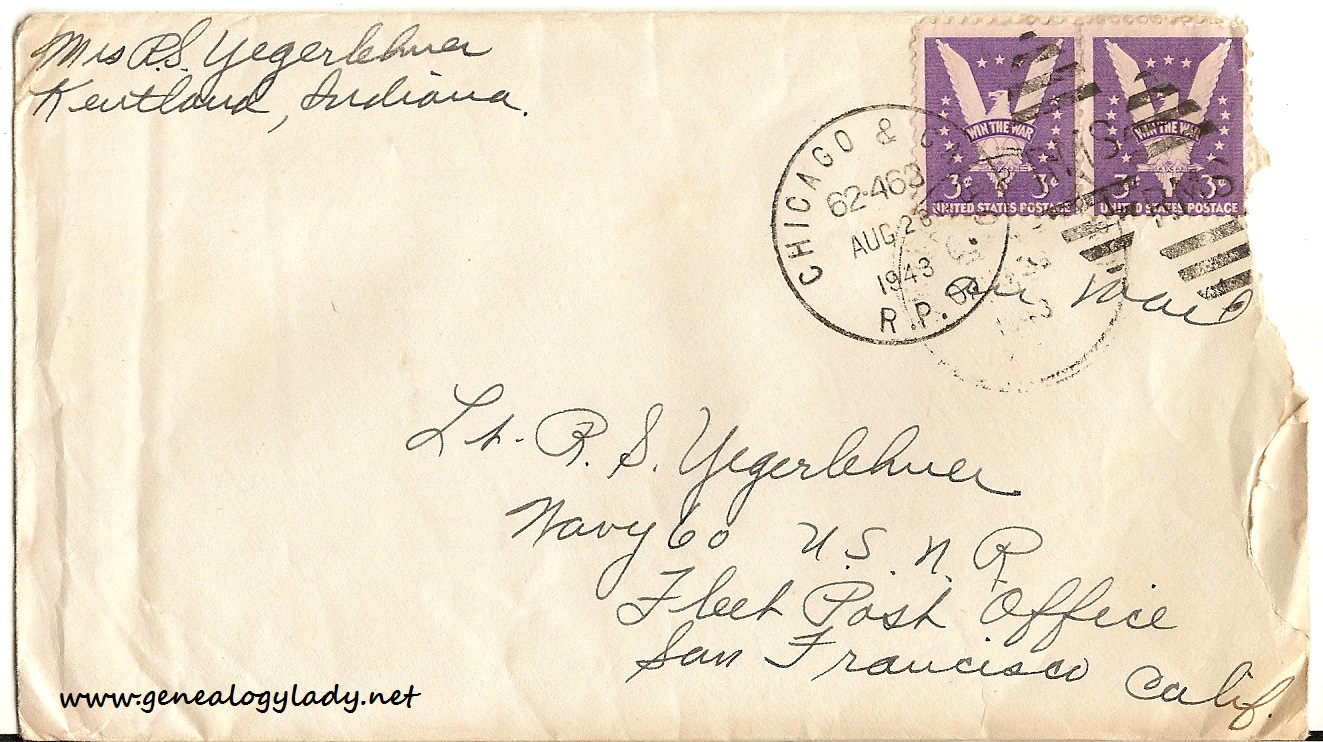 Mrs R.S. Yegerlehner
Kentland, Indiana.
WIN THE WAR
3¢ 3¢
UNITED STATES POSTAGE
WIN THE WAR
3¢ 3¢
UNITED STATES POSTAGE
CHICAGO &
62-463
AUG 26
1943
R.P.O.
Air Mail
Lt. R. S. Yegerlehner
Navy 60 U.S.N.R.
Fleet Post Office
San Francisco Calif.
www.genealogylady.net